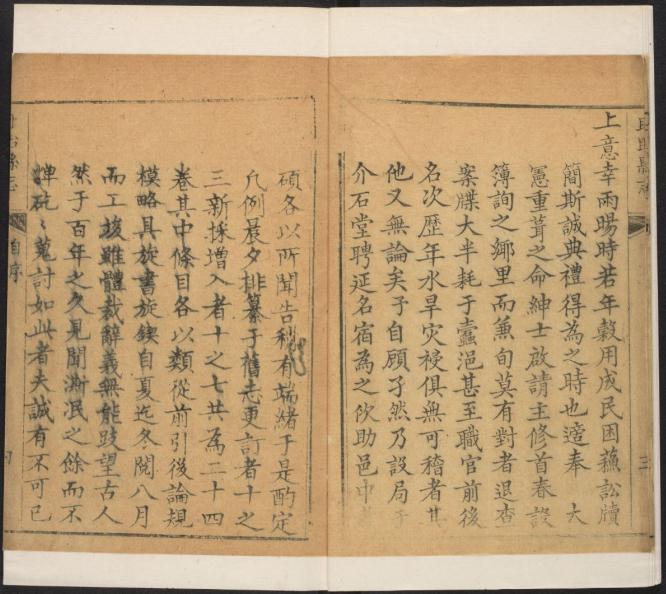 上意幸雨暘時若年穀用成民困蘓訟牘
簡斯誠典禮得為之時也適奉 大
憲重葺之命紳士啟請主修首春設
簿詢之鄉里而兼旬莫有對者退查
案牒大半耗于蠹浥甚至職官前後
名次歷年水旱灾祲俱無可稽者其
他又無論矣予自顧孑然乃設局于
介石堂聘延名宿為之佽助邑中
碩各以所聞告稍有端緒于是酌定
凡例晨夕排纂于舊志更訂者十之
三新採增入者十之七共為二十四
卷其中條目各以類從前引後論規
模略具旋書旋鍥自夏迄冬閱八月
而工竣雖體裁辭義無能跂望古人
然于百年之久見聞澌泯之餘而不
憚矻〻蒐討如此者夫誠有不可已
縣志
自序